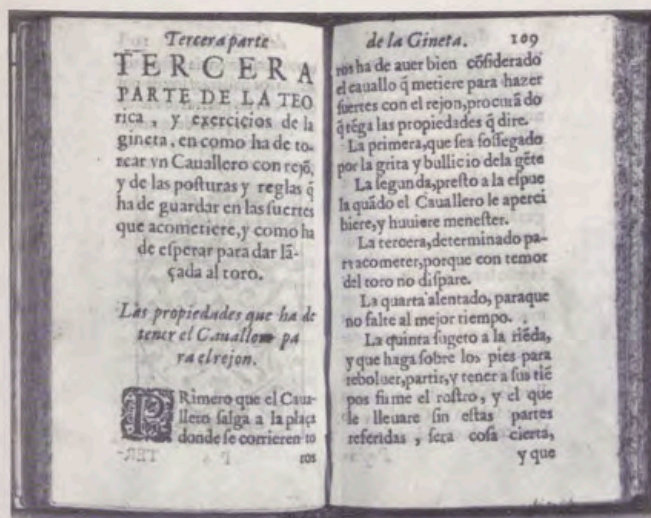 Tercera parte
TERCERA
PARTE DE LA TEO
rica, y exercicios de la
gineta, en como ha de to-
rear vn Cauallero con rejõ,
y de las posturas y reglas q̃
ha de guardar en las suertes
que acometiere, y como ha
de esperar para dar lã-
çada al toro.
Las propiedades que ha de
tener el Cauallero pa
ra el rejon.
PRimero que el Caua-
llero salga a la plaça
donde se corrieren to
ros
de la Gineta. 109
ros ha de auer bien cõsiderado
el cauallo q̃ metiere para hazer
suertes con el rejon, procurã do
q̃ tẽga las propiedades q̃ dire.
La primera, que sea sossegado
por la grita y bullicio dela gẽte
La segunda, presto a la espue
la quãdo el Cauallero le aperci
biere, y huuiere menester.
La tercera, determinado pa-
ra acometer, porque con temor
del toro no dispare.
La quarta alentado, paraque
no falte al mejor tiempo.
La quinta sugeto a la riẽda,
y que haga sobre los pies para
reboluer, partir, y tener a sus tiẽ
pos firme el rostro, y el que
le lleuare sin estas partes
referidas, sera cosa cierta,
y que